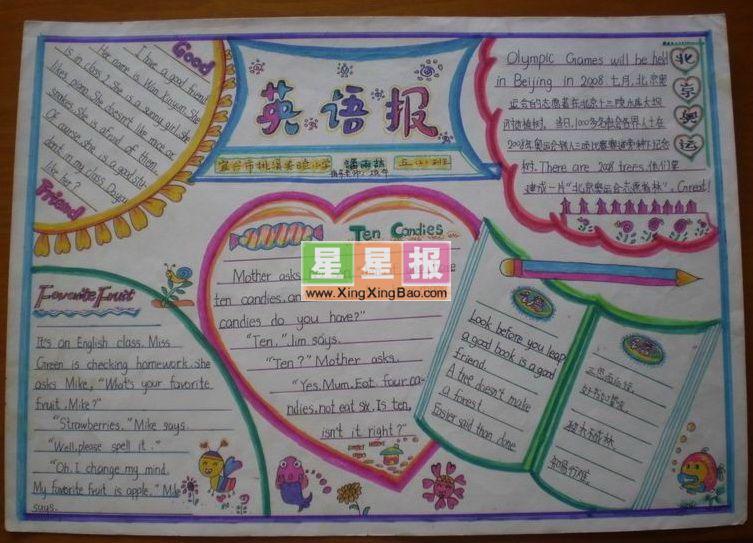 Good
Friend
I have a good friend
is in class 2. She is a sunny girl. She
likes piano. She doesn't like mice or
snakes. she is afraid of them.
Of course. she is a good stu-
dent in my class. Do you
like her?
英语报
五(2)班
Olympic Games will be held
in Beijing in 2008.七月,北京奥
运会的志愿者在北京十三陵水库大坝
2008年奥运会
树. There are 2008 trees.他们是
建成一片“北京奥运会志愿者林”. Great!
北京奥运
Ten Candies
Mother asks
ten candies.an
candies do you have?"
"Ten," Jim says.
"Ten?" Mother asks.
"Yes, Mum. Eat four ca-
ndies, not eat six. Is ten,
isn't it right?"
星星报
www.XingXingBao.com
Favorite Fruit
It's an English class. Miss
Green is checking homework. She
asks Mike, "What's your favorite
fruit, Mike?"
"Strawberries." Mike says.
"Well, please spell it."
"Oh. I change my mind.
My favorite fruit is apple." Mike
says.
Look before you leap
a good book is a good
friend.
A tree doesn't make
a forest
Easier said than done
三思而后行.
好书如挚友.
独木不成林
知易行难.